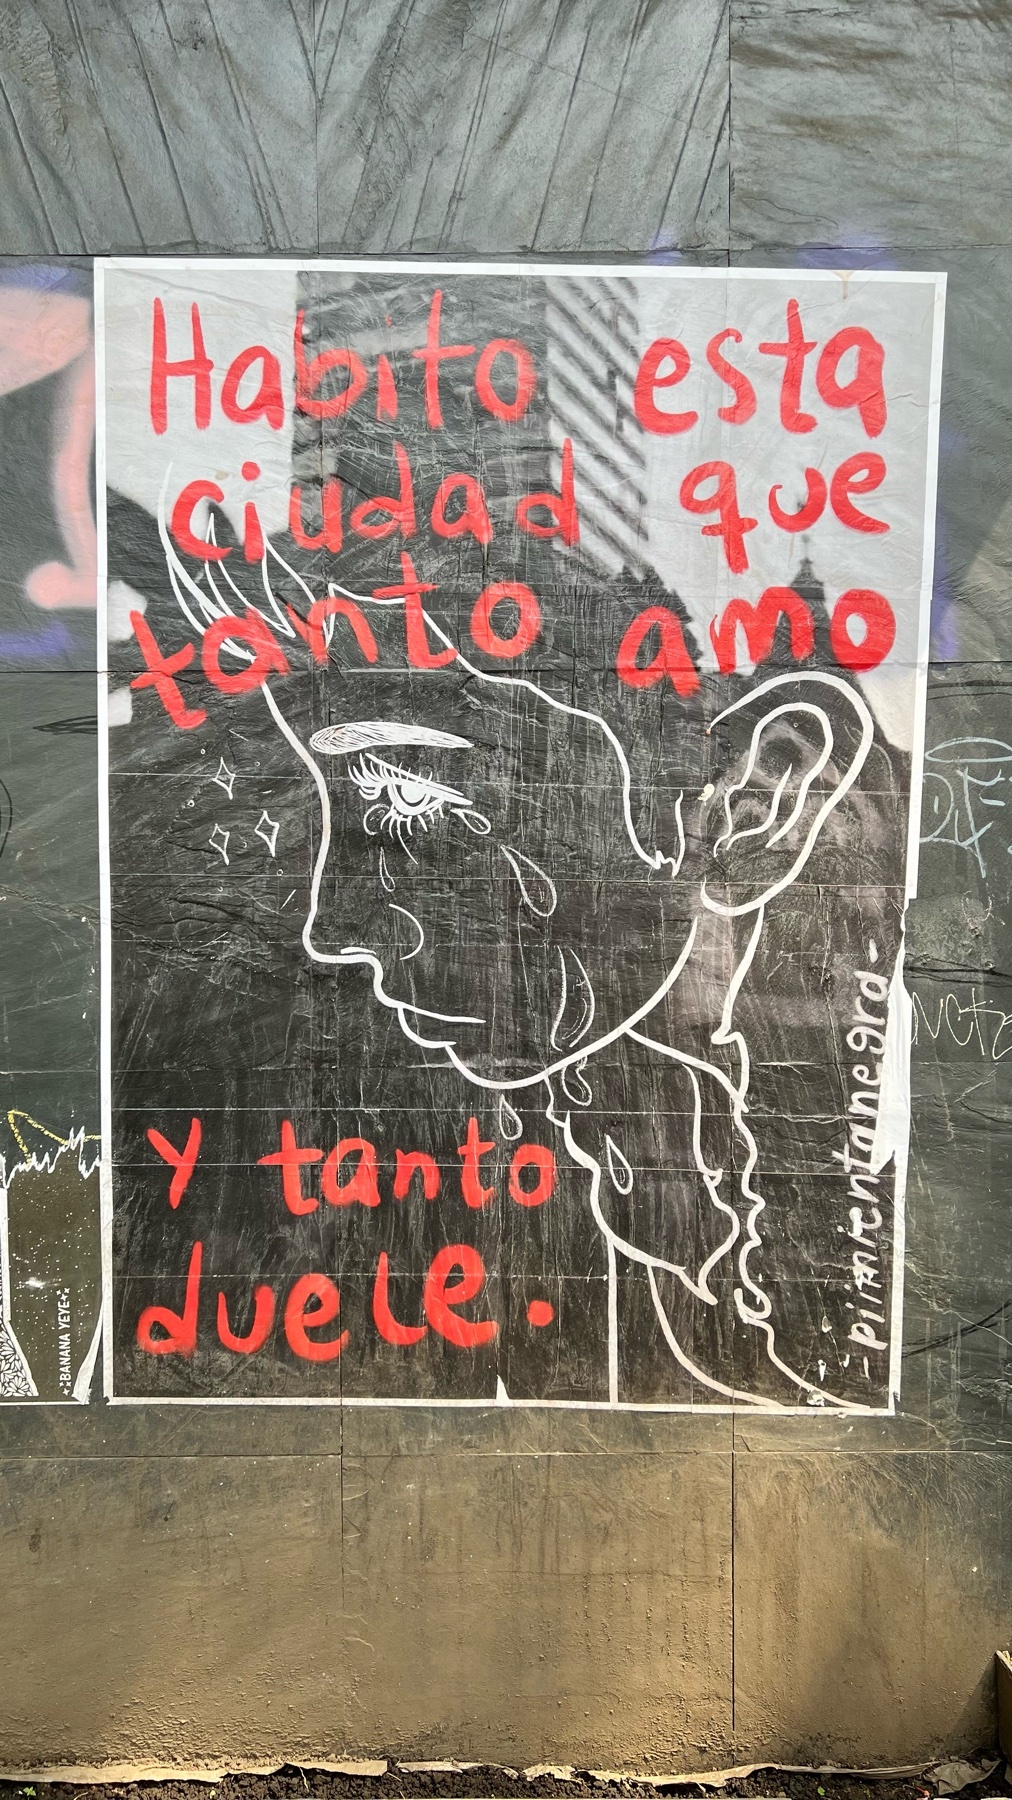 Habito esta
ciudad que
tanto amo
y tanto
duele.
-pimientanegra-
BANANA YEYE